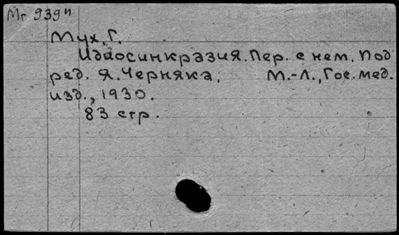 Мг 939п
Мух, Г.
Идиосинкразия. Пер. с нем. Под
ред. Я. Черняка. М.-Л., Гос. мед.
изд., 1930.
83 стр.